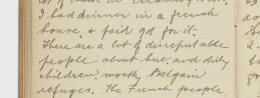 I had dinner in a french
house, & paid 9d for it.
There are a lot of disreputable
people about here, and dirty
children, mostly Belgain
refugees. The French people